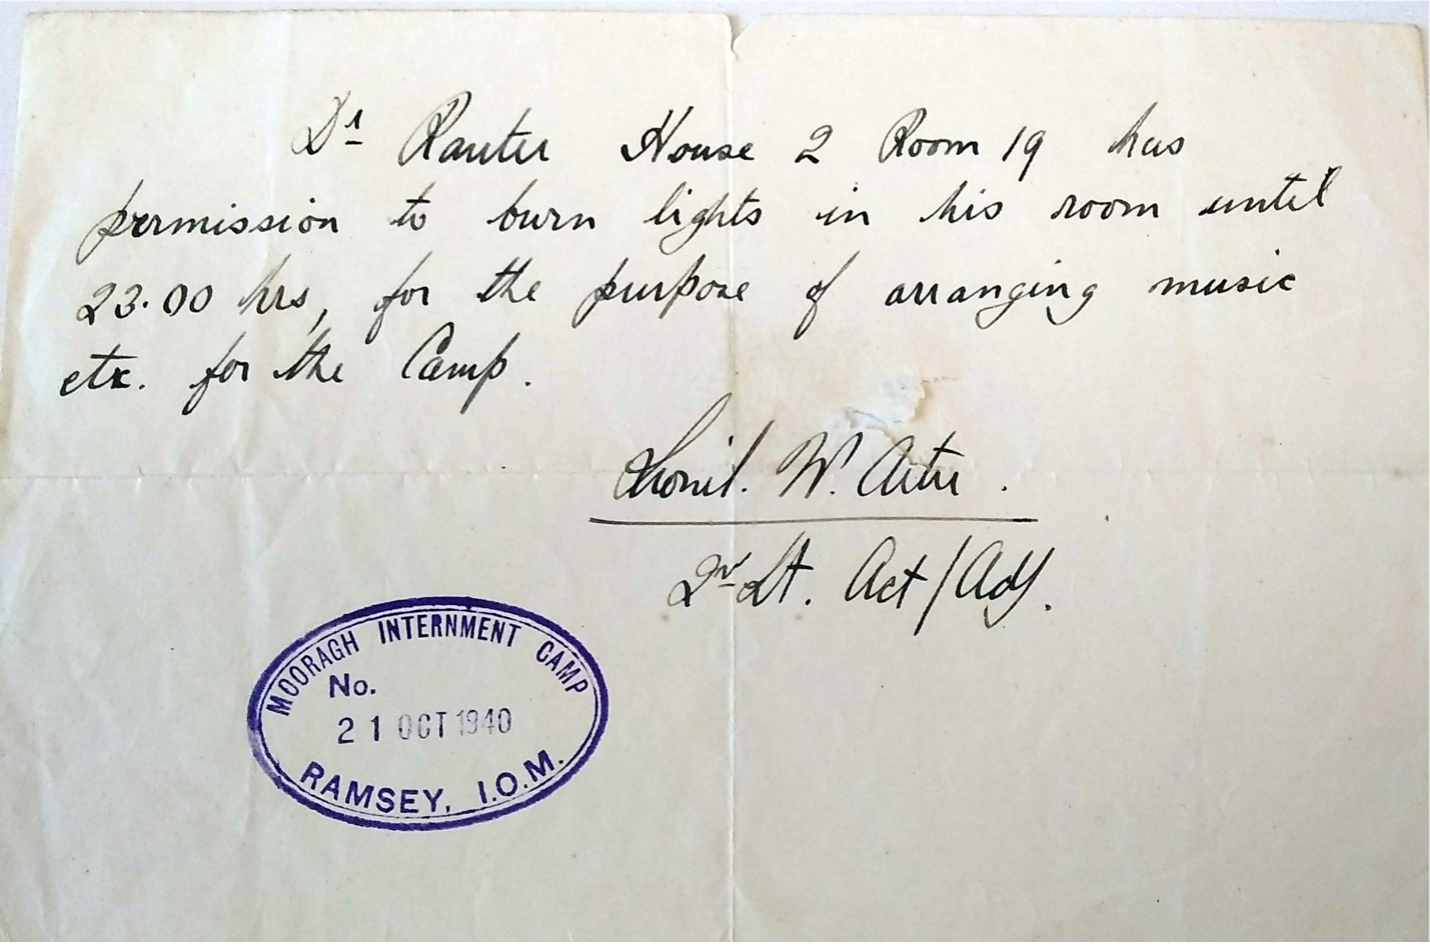 Dr Rauter House 2 Room 19 has
permission to burn lights in his room until
23.00 hrs, for the purpose of arranging music
etc. for the Camp.
W.
2nd Lt. Act/Adj.
MOORAGH INTERNMENT CAMP
No.
21 OCT 1940
RAMSEY, I.O.M.